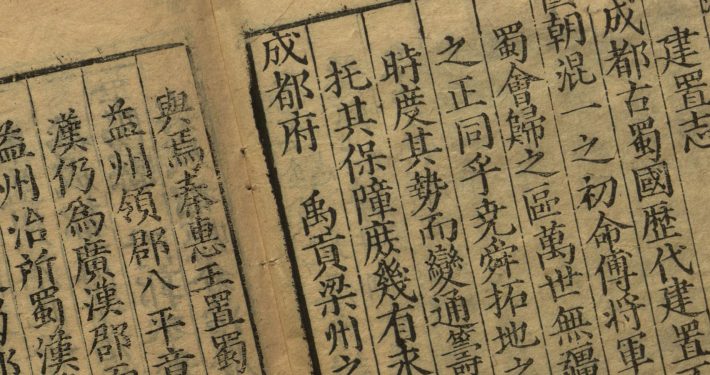 建置志
成都古蜀國歷代建置
朝混一之初命傅將軍
蜀會歸之區萬世無疆
之正同乎堯舜拓地之
時度其勢而變通
托其保障庶幾有
成都府 禹貢梁州之
與焉秦惠王置蜀
益州領郡八平章
漢仍為廣漢郡
益州治所蜀漢